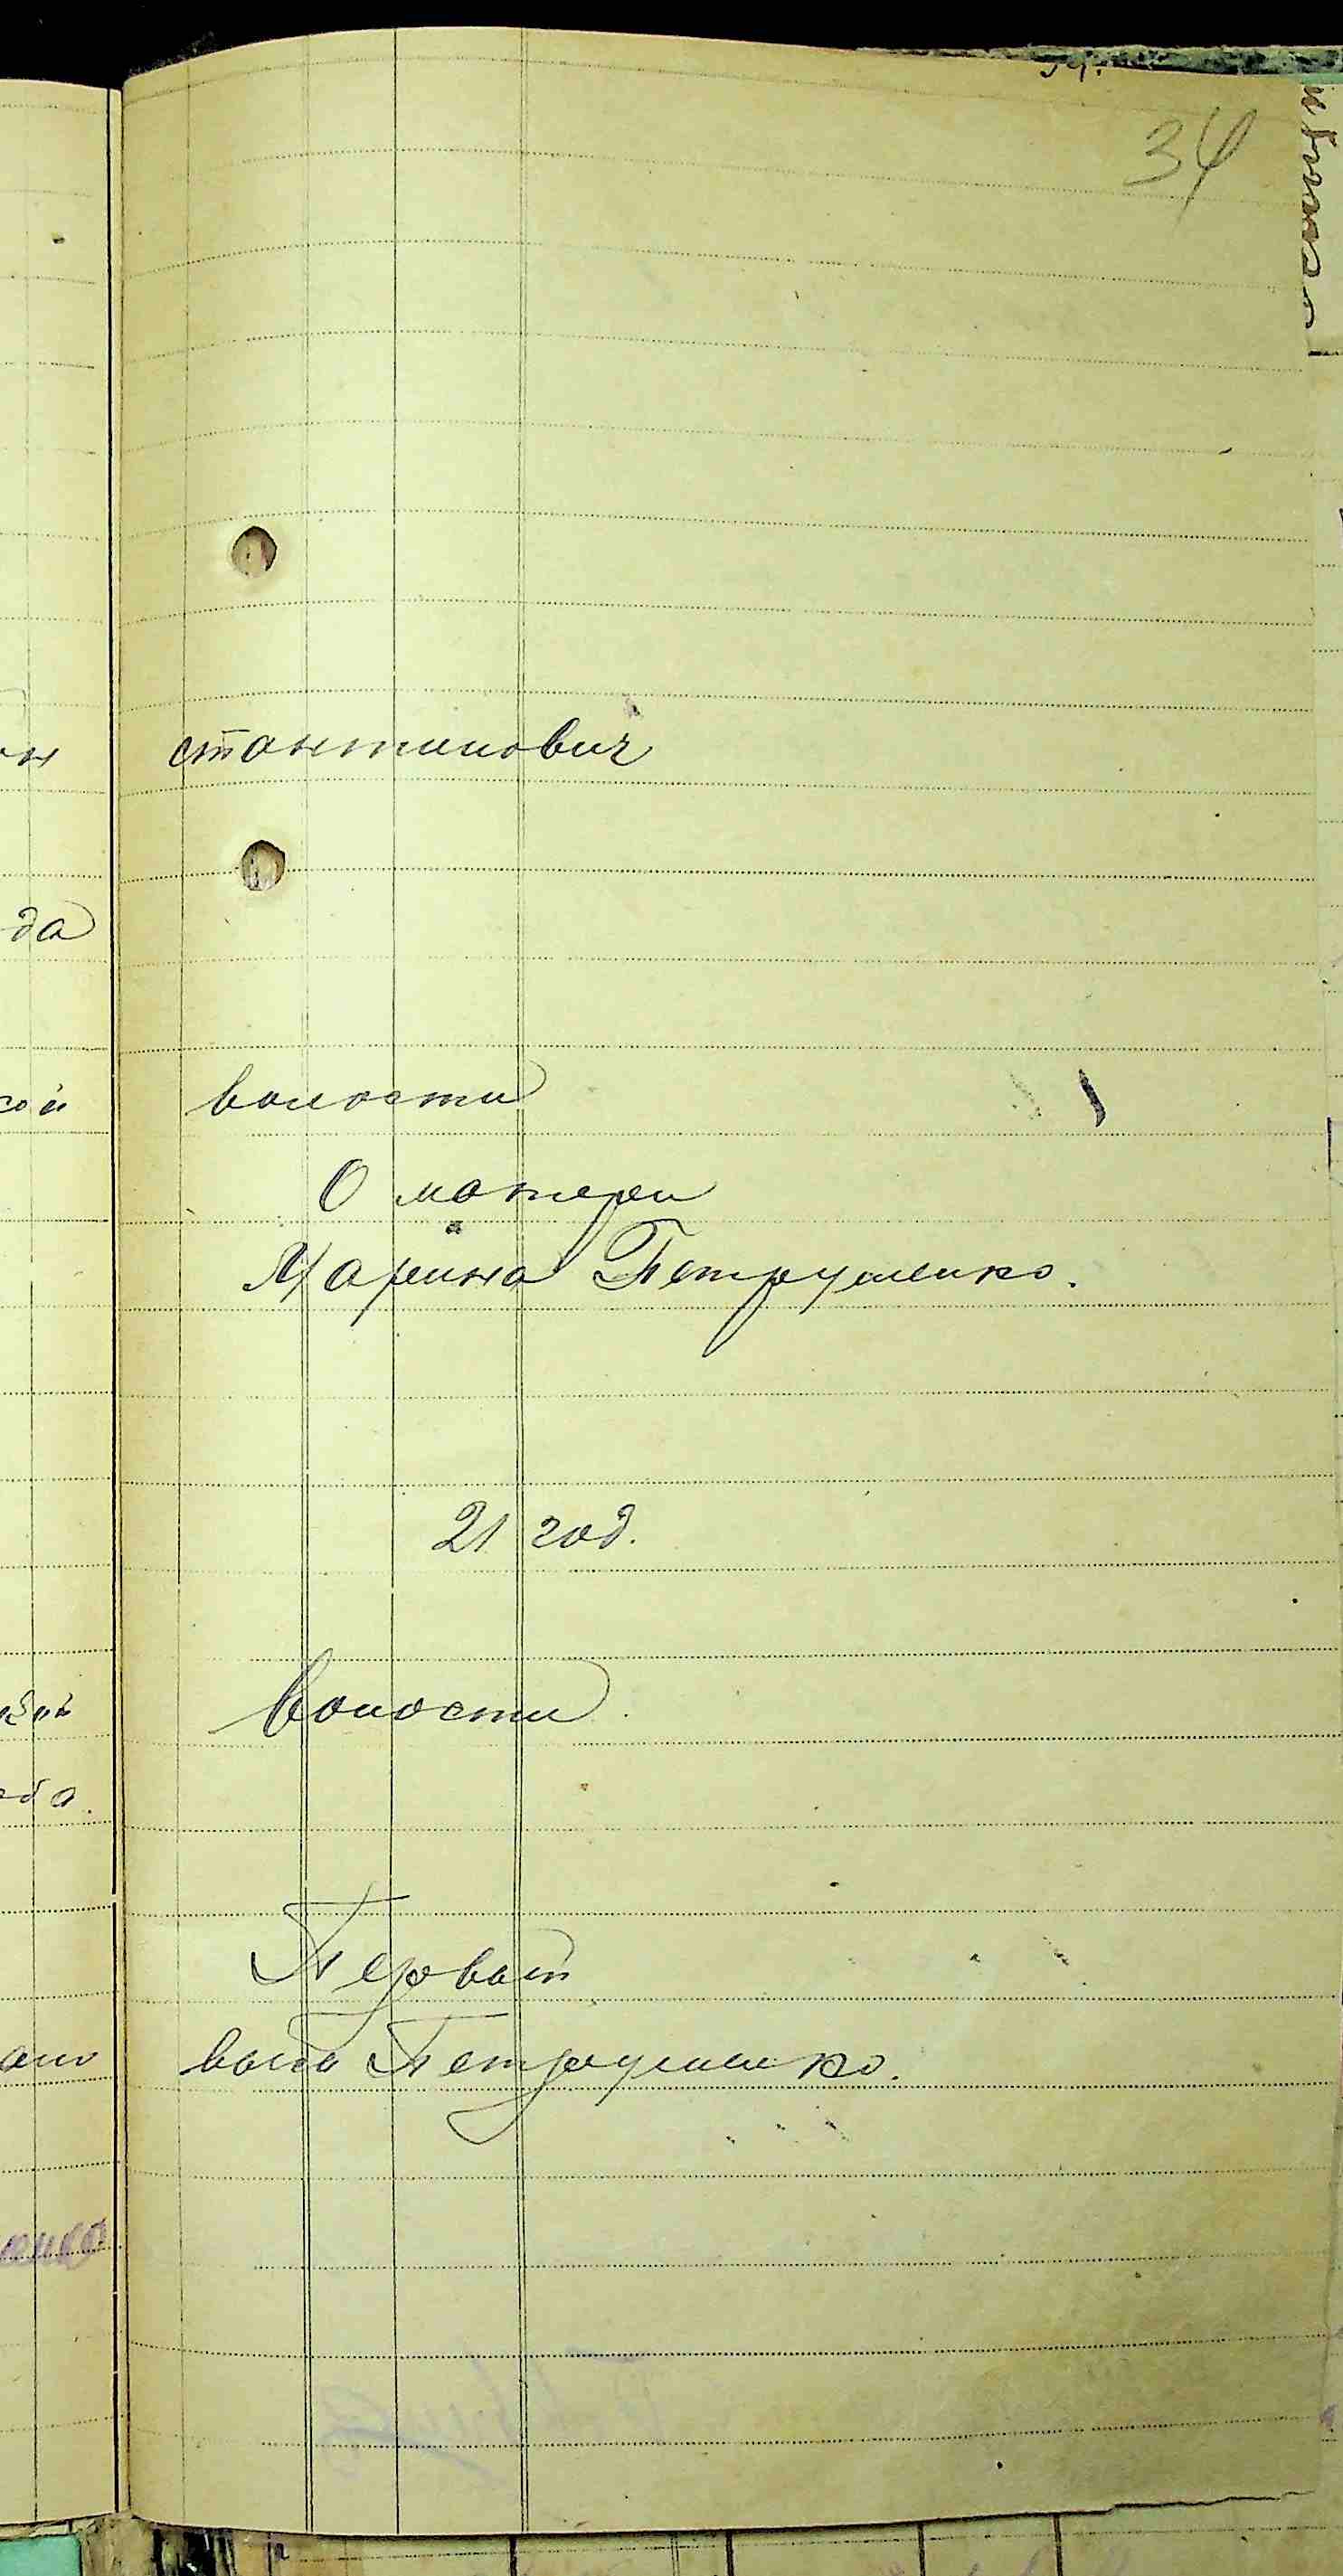 34
стантинович
да
волости
О матери
Марина Петрушенко.
21 год.
Волости
Первый
вана Петрушенко.